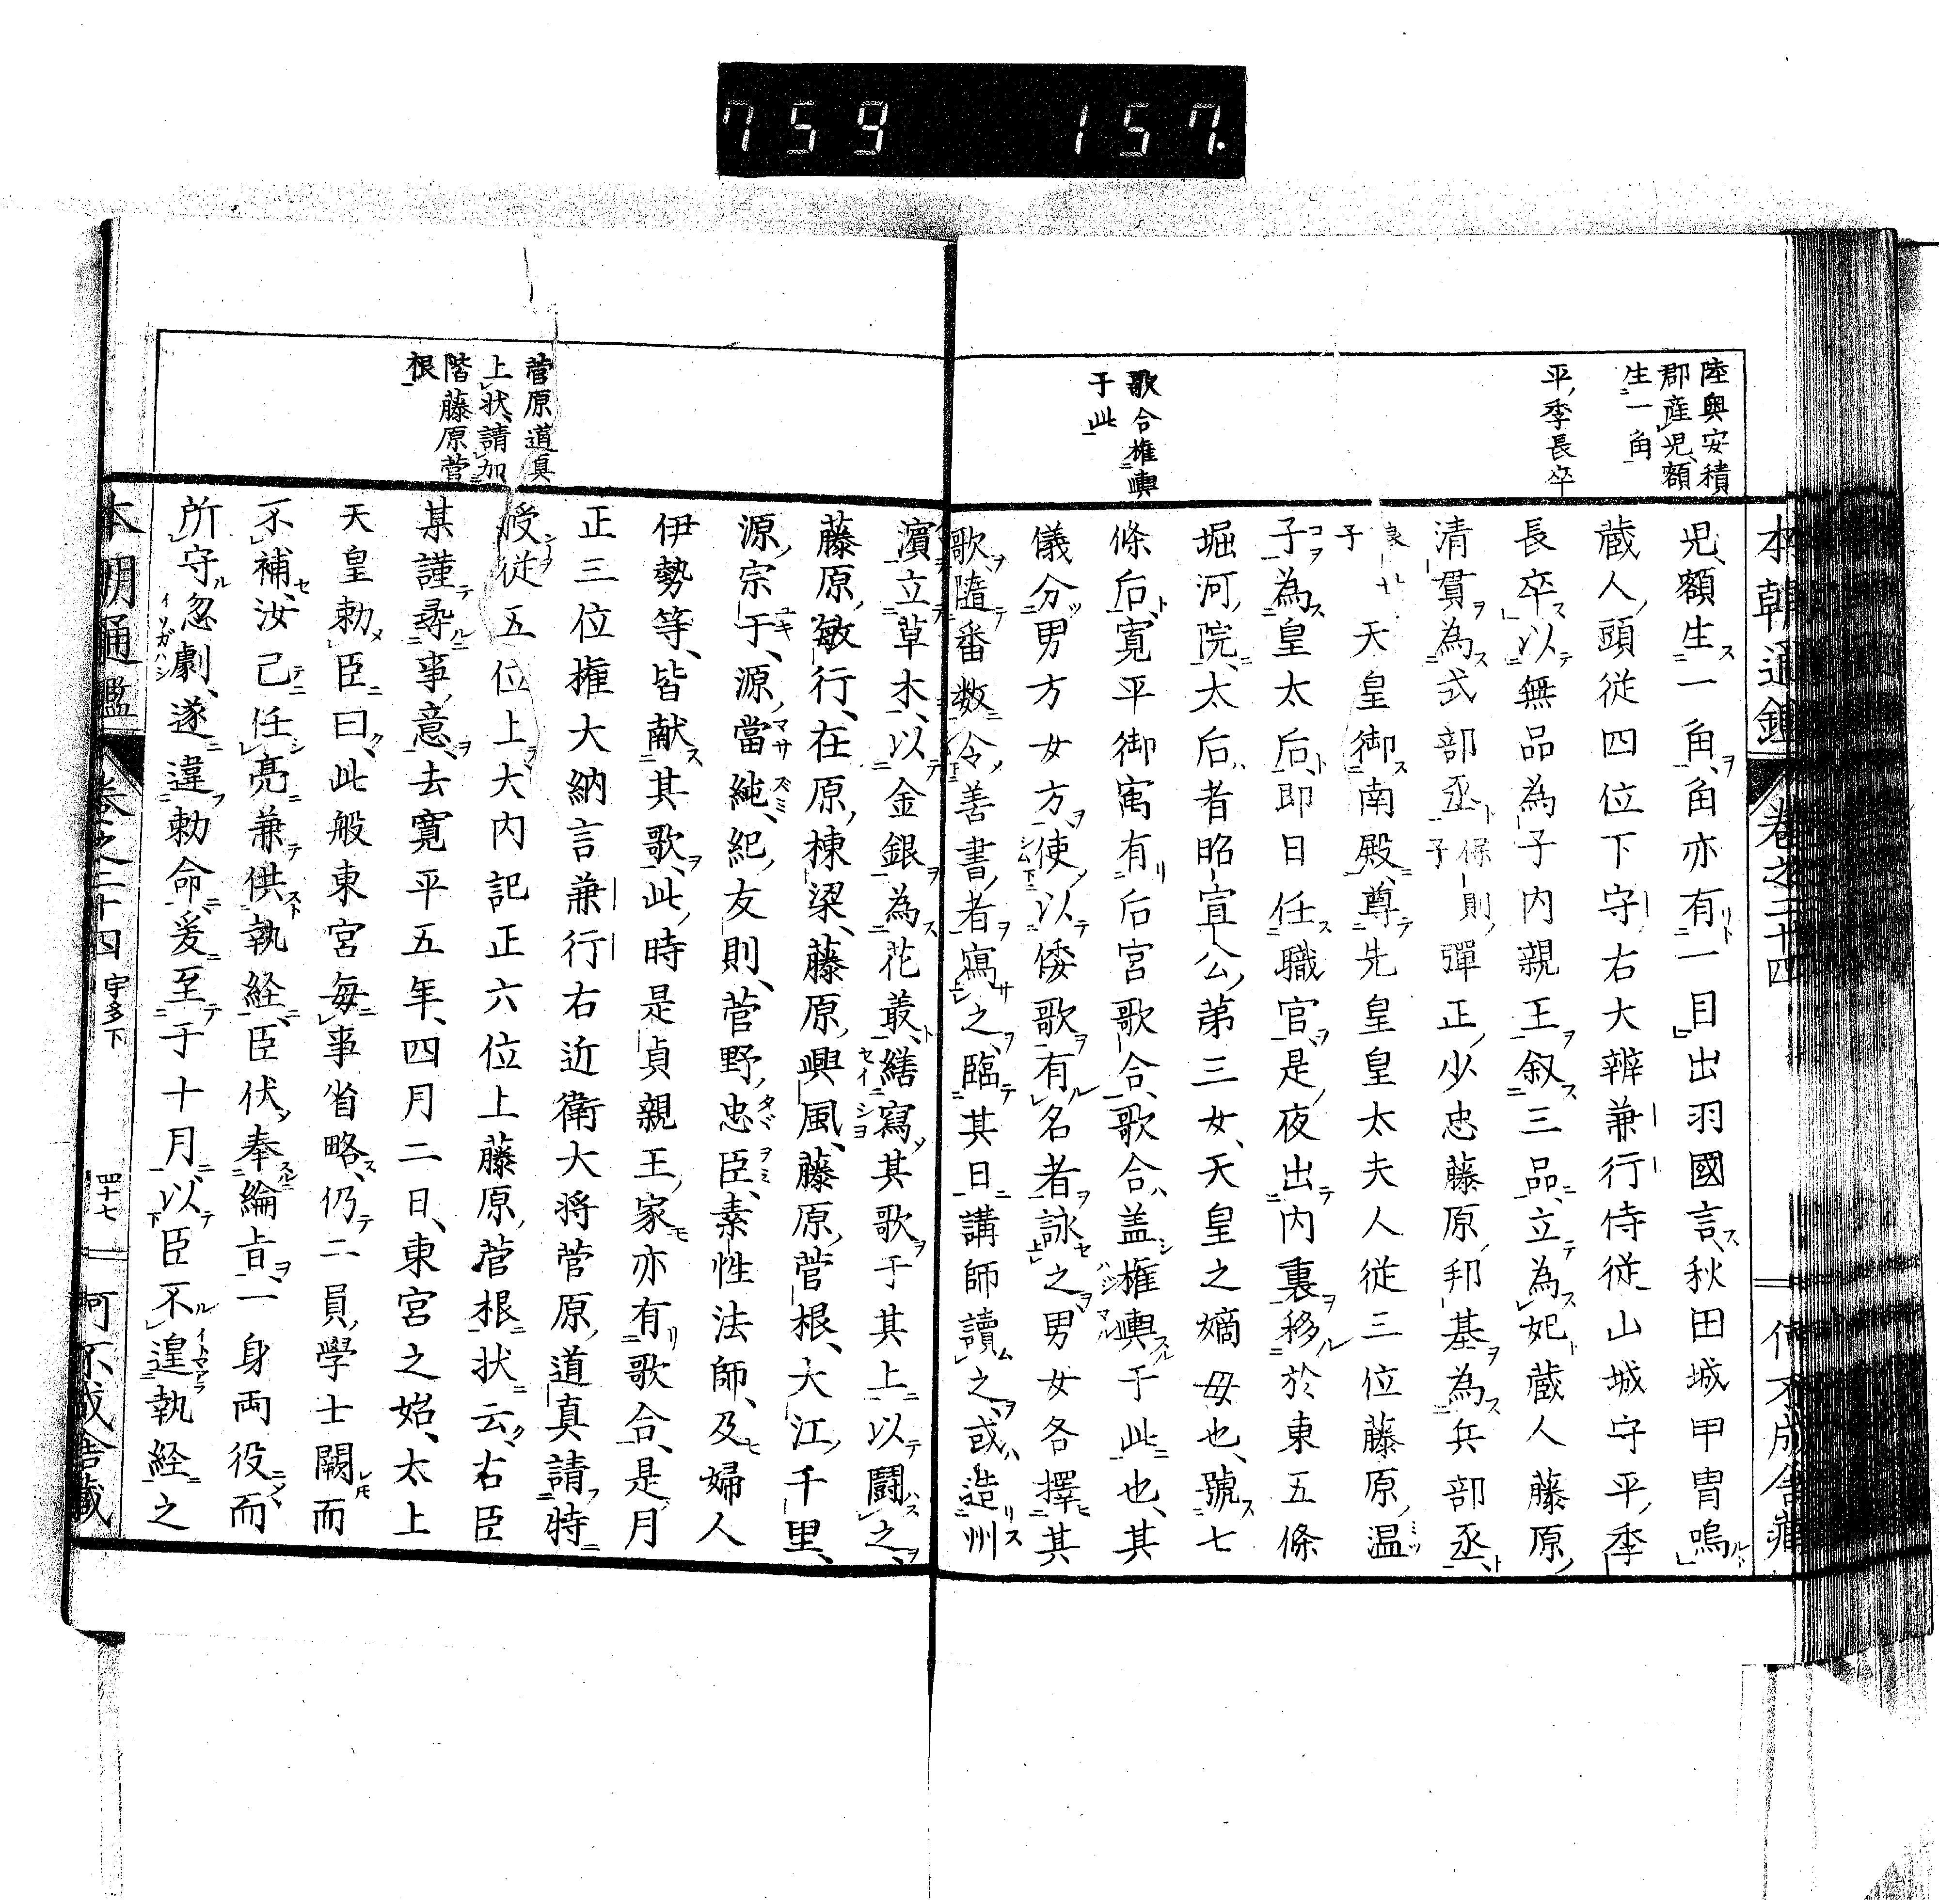 759 157.
陸奧安積
郡産児額
生一角
平季長卒
歌合権輿
于此
児額生一角角亦有一目出羽國言秋田城甲冑鳴
蔵人頭従四位下守右大辨兼行侍従山城守平季
長卒以無品為子内親王叙三品立為妃蔵人藤原
清貫為式部丞保則子弾正少忠藤原邦基為兵部丞
良世子天皇御南殿尊先皇皇太夫人従三位藤原温
子為皇太后即日任職官是夜出内裏移於東五條
堀河院太后者昭宣公第三女天皇之嫡母也號七
條后寛平御寓有后宮歌合歌合盖権輿于此也其
儀分男方女方使以倭歌有名者詠之男女各擇其
歌隨番数令善書者寫之臨其日講師讀之或造州
菅原道真
上状請加
階藤原菅
根
濵立草木以金銀為花叢繕寫其歌于其上以闘之
藤原敏行在原棟梁藤原興風藤原菅根大江千里
源宗于源當純紀友則菅野忠臣素性法師及婦人
伊勢等皆献其歌此時是貞親王家亦有歌合是月
正三位権大納言兼行右近衛大将菅原道真請特
授従五位上大内記正六位上藤原菅根状云右臣
某謹尋事意去寛平五年四月二日東宮之始太上
天皇勅臣曰此般東宮毎事省略仍二員學士闕而
不補汝己任亮兼供執経臣伏奉綸旨一身両役而
所守忽劇遂違勅命爰至于十月以臣不遑執経之
本朝通鑑 卷之二十四 宇多下 四十七